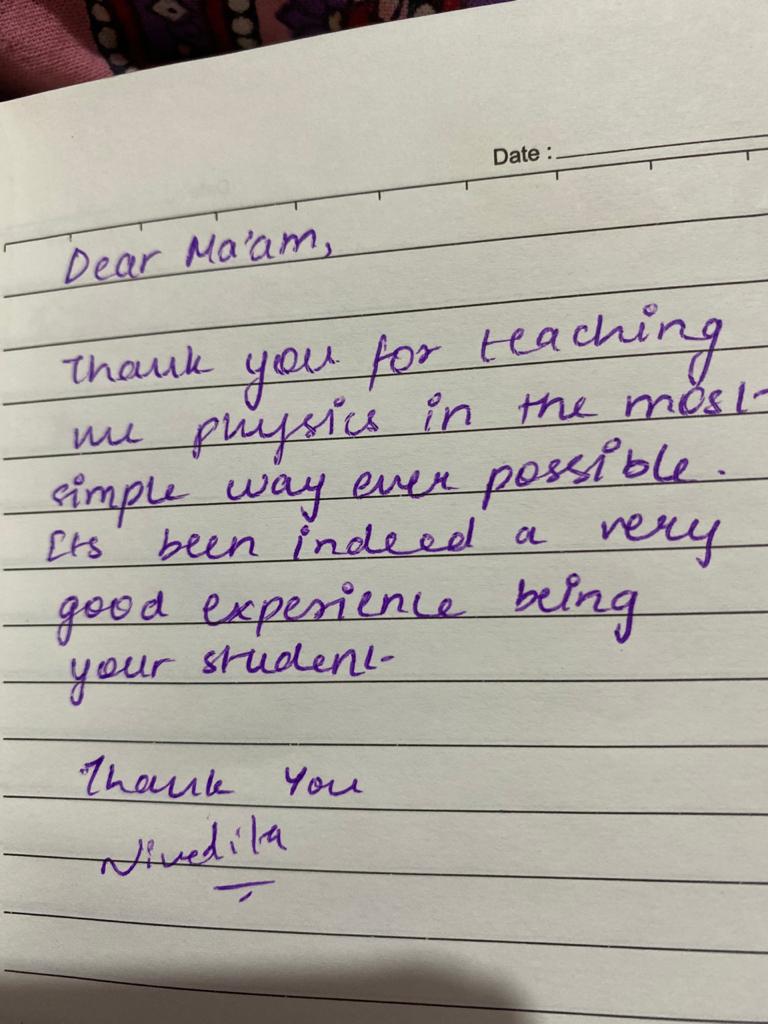 Date :
Dear Ma'am,
Thank you for teaching
me physics in the most
simple way ever possible.
Its been indeed a very
good experience being
your student
Thank You
Nivedita